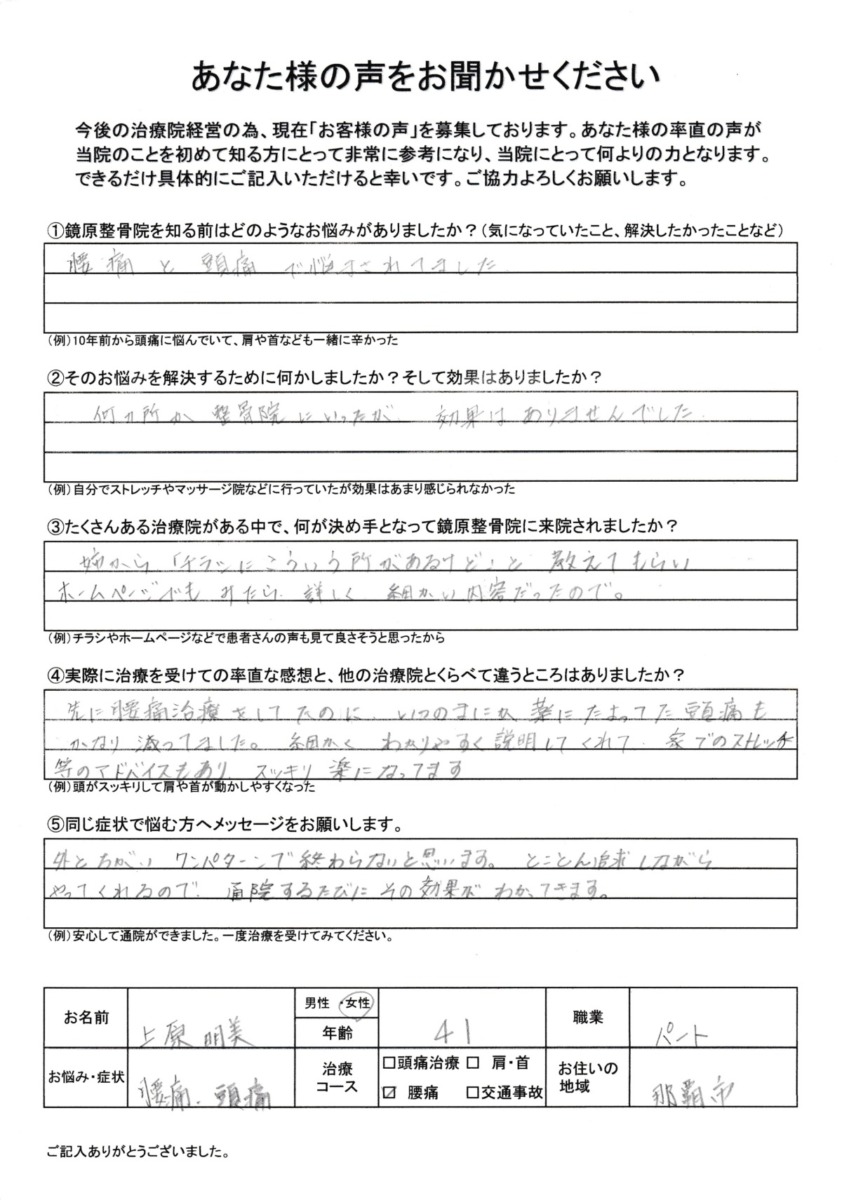 あなた様の声をお聞かせください
今後の治療院経営の為、現在「お客様の声」を募集しております。あなた様の率直の声が
当院のことを初めて知る方にとって非常に参考になり、当院にとって何よりの力となります。
できるだけ具体的にご記入いただけると幸いです。ご協力よろしくお願いします。
①鏡原整骨院を知る前はどのようなお悩みがありましたか？（気になっていたこと、解決したかったことなど）
腰痛と頭痛で悩まされてました
（例）10年前から頭痛に悩んでいて、肩や首なども一緒に辛かった
②そのお悩みを解決するために何かしましたか？そして効果はありましたか？
何カ所か整骨院にいったが、効果はありませんでした。
（例）自分でストレッチやマッサージ院などに行っていたが効果はあまり感じられなかった
③たくさんある治療院がある中で、何が決め手となって鏡原整骨院に来院されましたか？
姉から「チラシにこういう所があるけど」と教えてもらい
ホームページでもみたら、詳しく細かい内容だったので。
（例）チラシやホームページなどで患者さんの声も見て良さそうと思ったから
④実際に治療を受けての率直な感想と、他の治療院とくらべて違うところはありましたか？
先に腰痛治療をしてたのに、いつのまにか薬にたよってた頭痛も
かなり減ってました。細かくわかりやすく説明してくれて、家でのストレッチ
等のアドバイスもあり、スッキリ楽になってます
（例）頭がスッキリして肩や首が動かしやすくなった
⑤同じ症状で悩む方へメッセージをお願いします。
外とちがいワンパターンで終わらないと思います。とことん追求しながら
やってくれるので、通院するたびにその効果がわかってきます。
（例）安心して通院ができました。一度治療を受けてみてください。
お名前 上原明美 男性・女性 年齢 41 職業 パート
お悩み・症状 腰痛、頭痛 治療コース □頭痛治療 □ 肩・首 ☑ 腰痛 □交通事故 お住いの地域 那覇市
ご記入ありがとうございました。